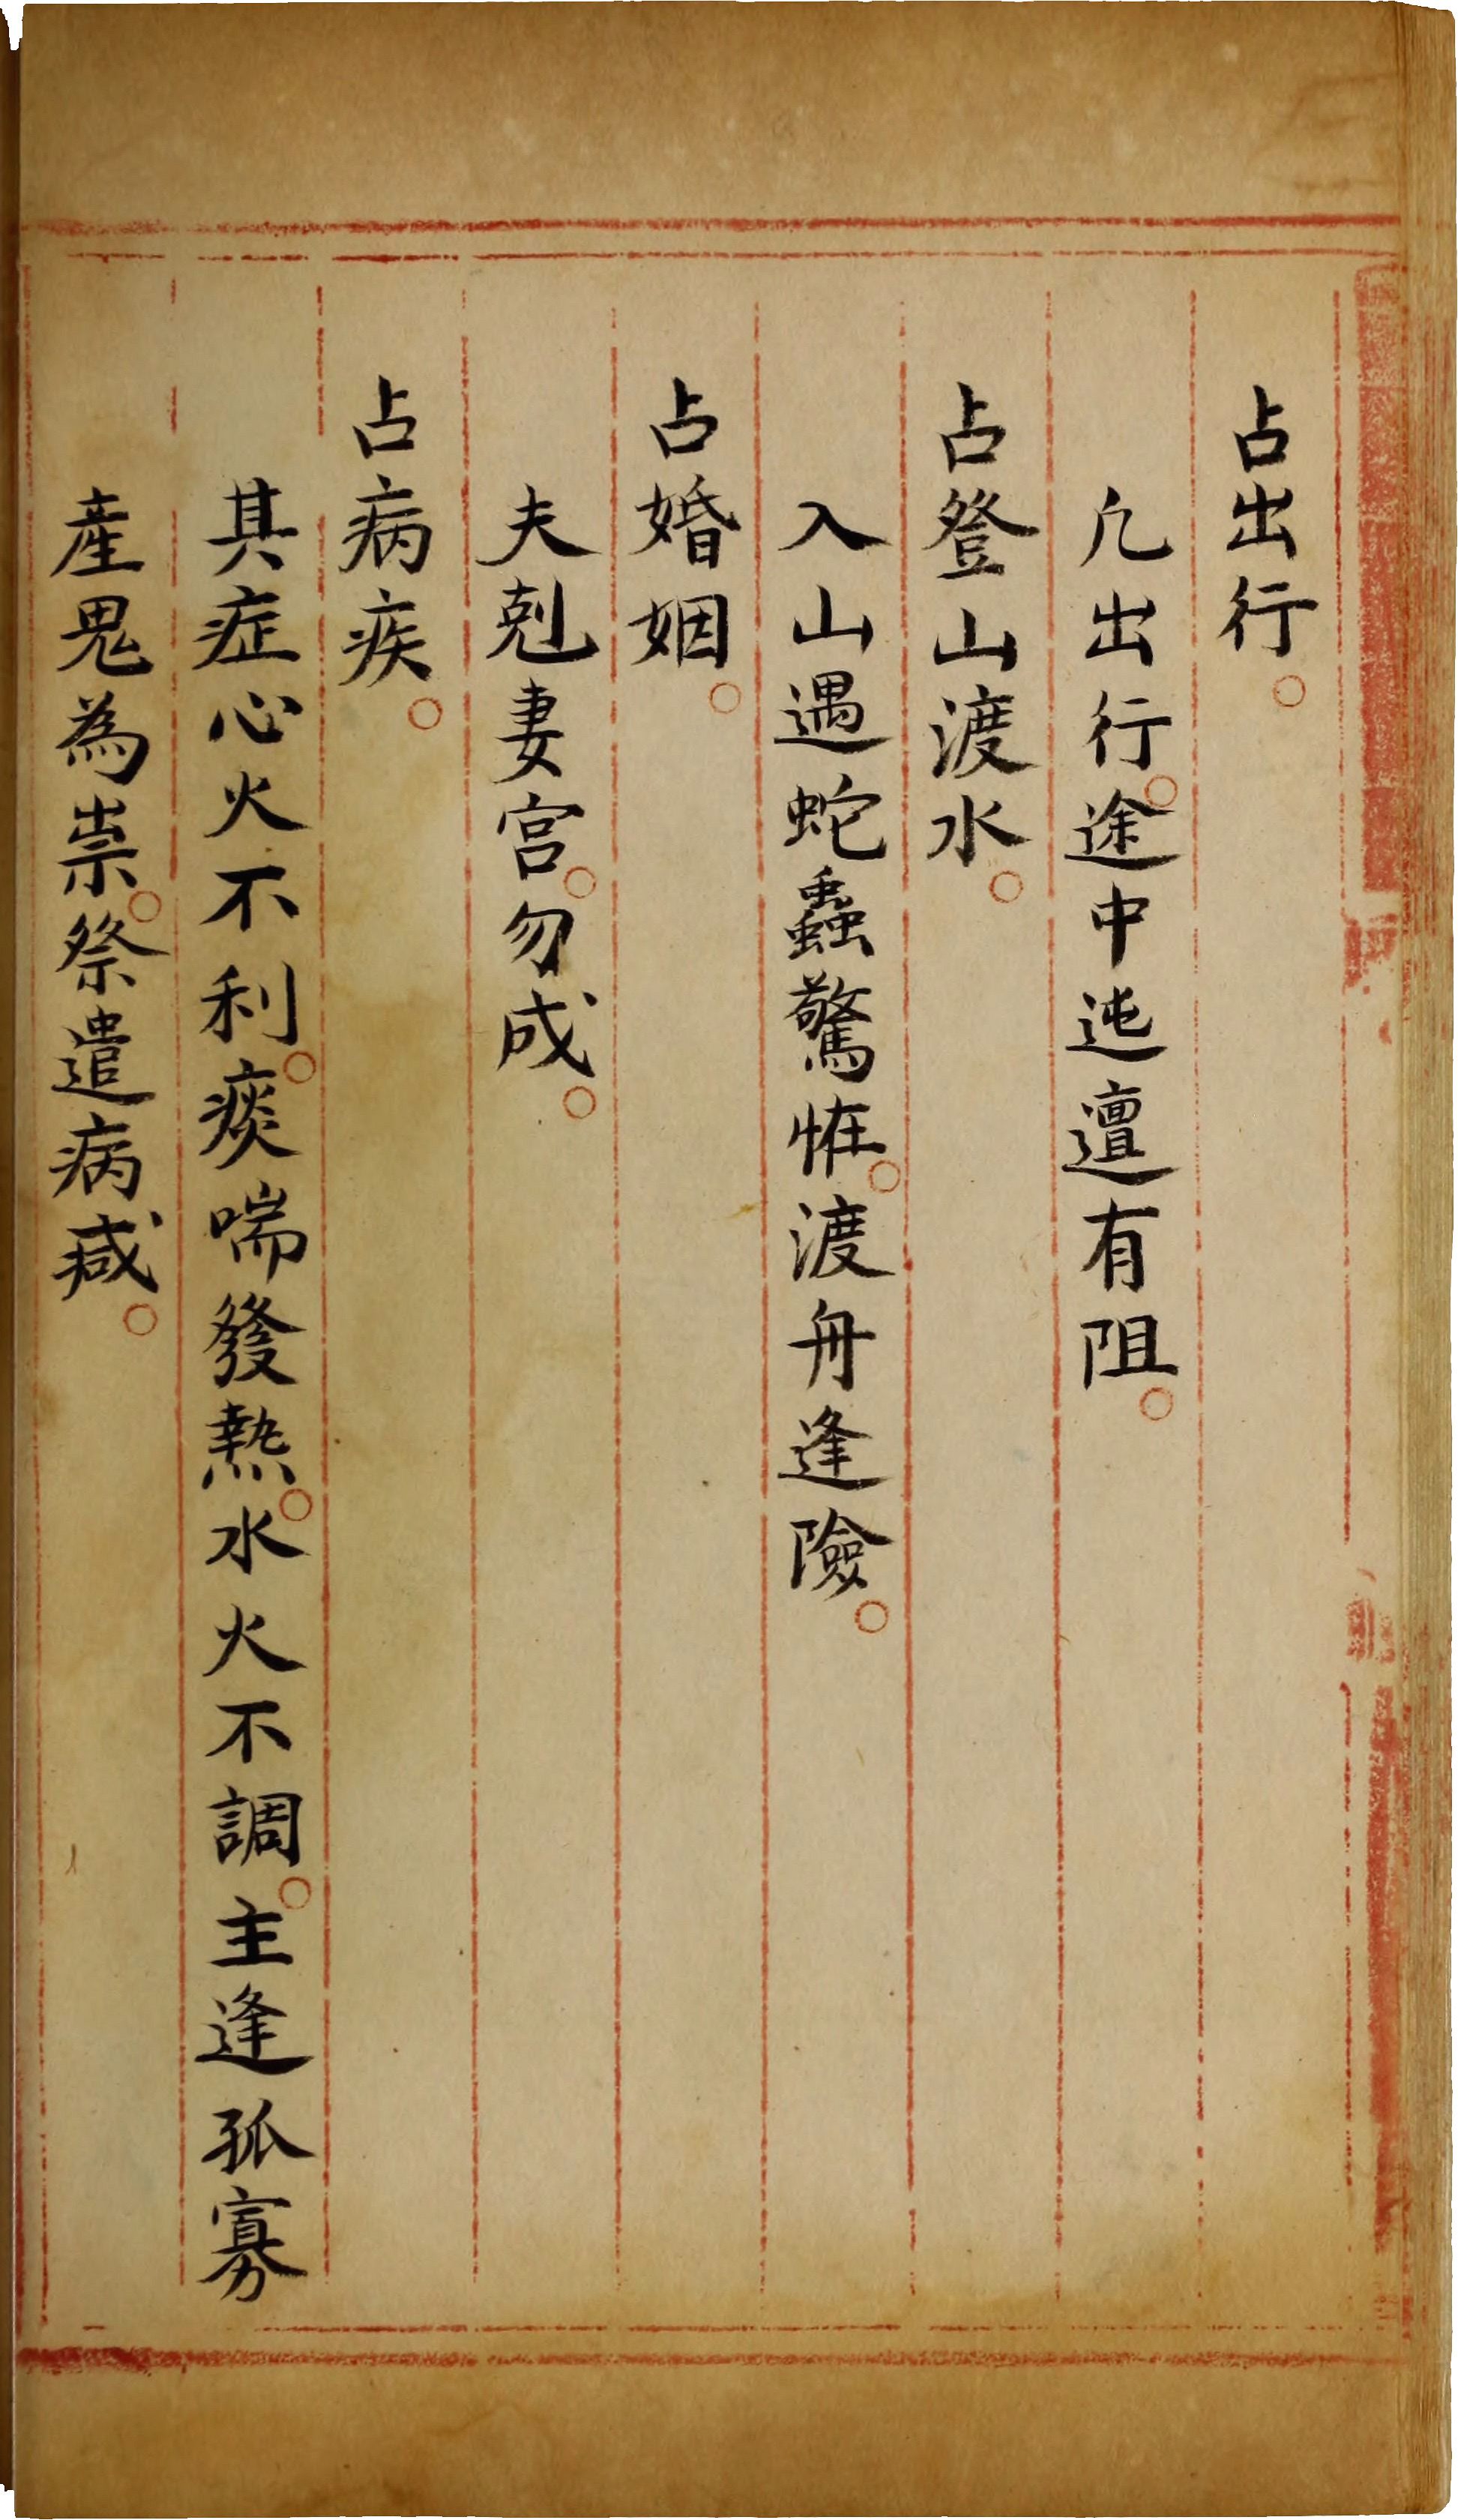 占出行。
凢出行。途中迍邅有阻。
占登山渡水。
入山遇蛇蟲驚恠。渡舟逢險。
占婚姻。
夫剋妻宮。勿成。
占病疾。
其症心火不利。痰喘發熱。水火不調。主逢孤寡
產鬼為祟。祭遣病減。